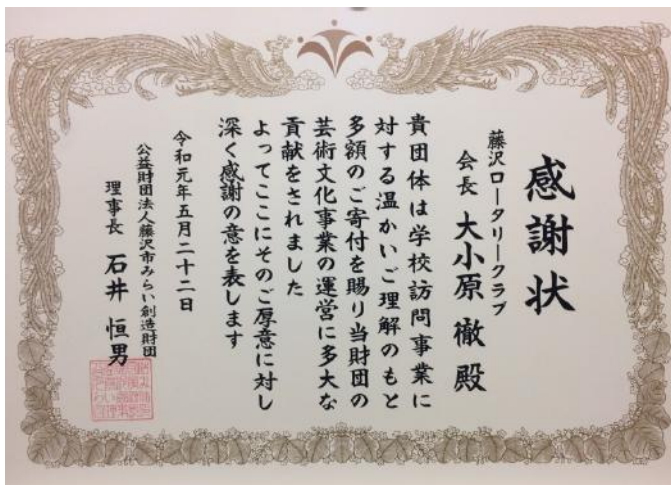 感謝状
藤沢ロータリークラブ
会長 大小原 徹 殿
貴団体は学校訪問事業に
対する温かいご理解のもと
多額のご寄付を賜り当財団の
芸術文化事業の運営に多大な
貢献をされました
よってここにそのご厚意に対し
深く感謝の意を表します
令和元年五月二十二日
公益財団法人藤沢市みらい創造財団
理事長 石井 恒男